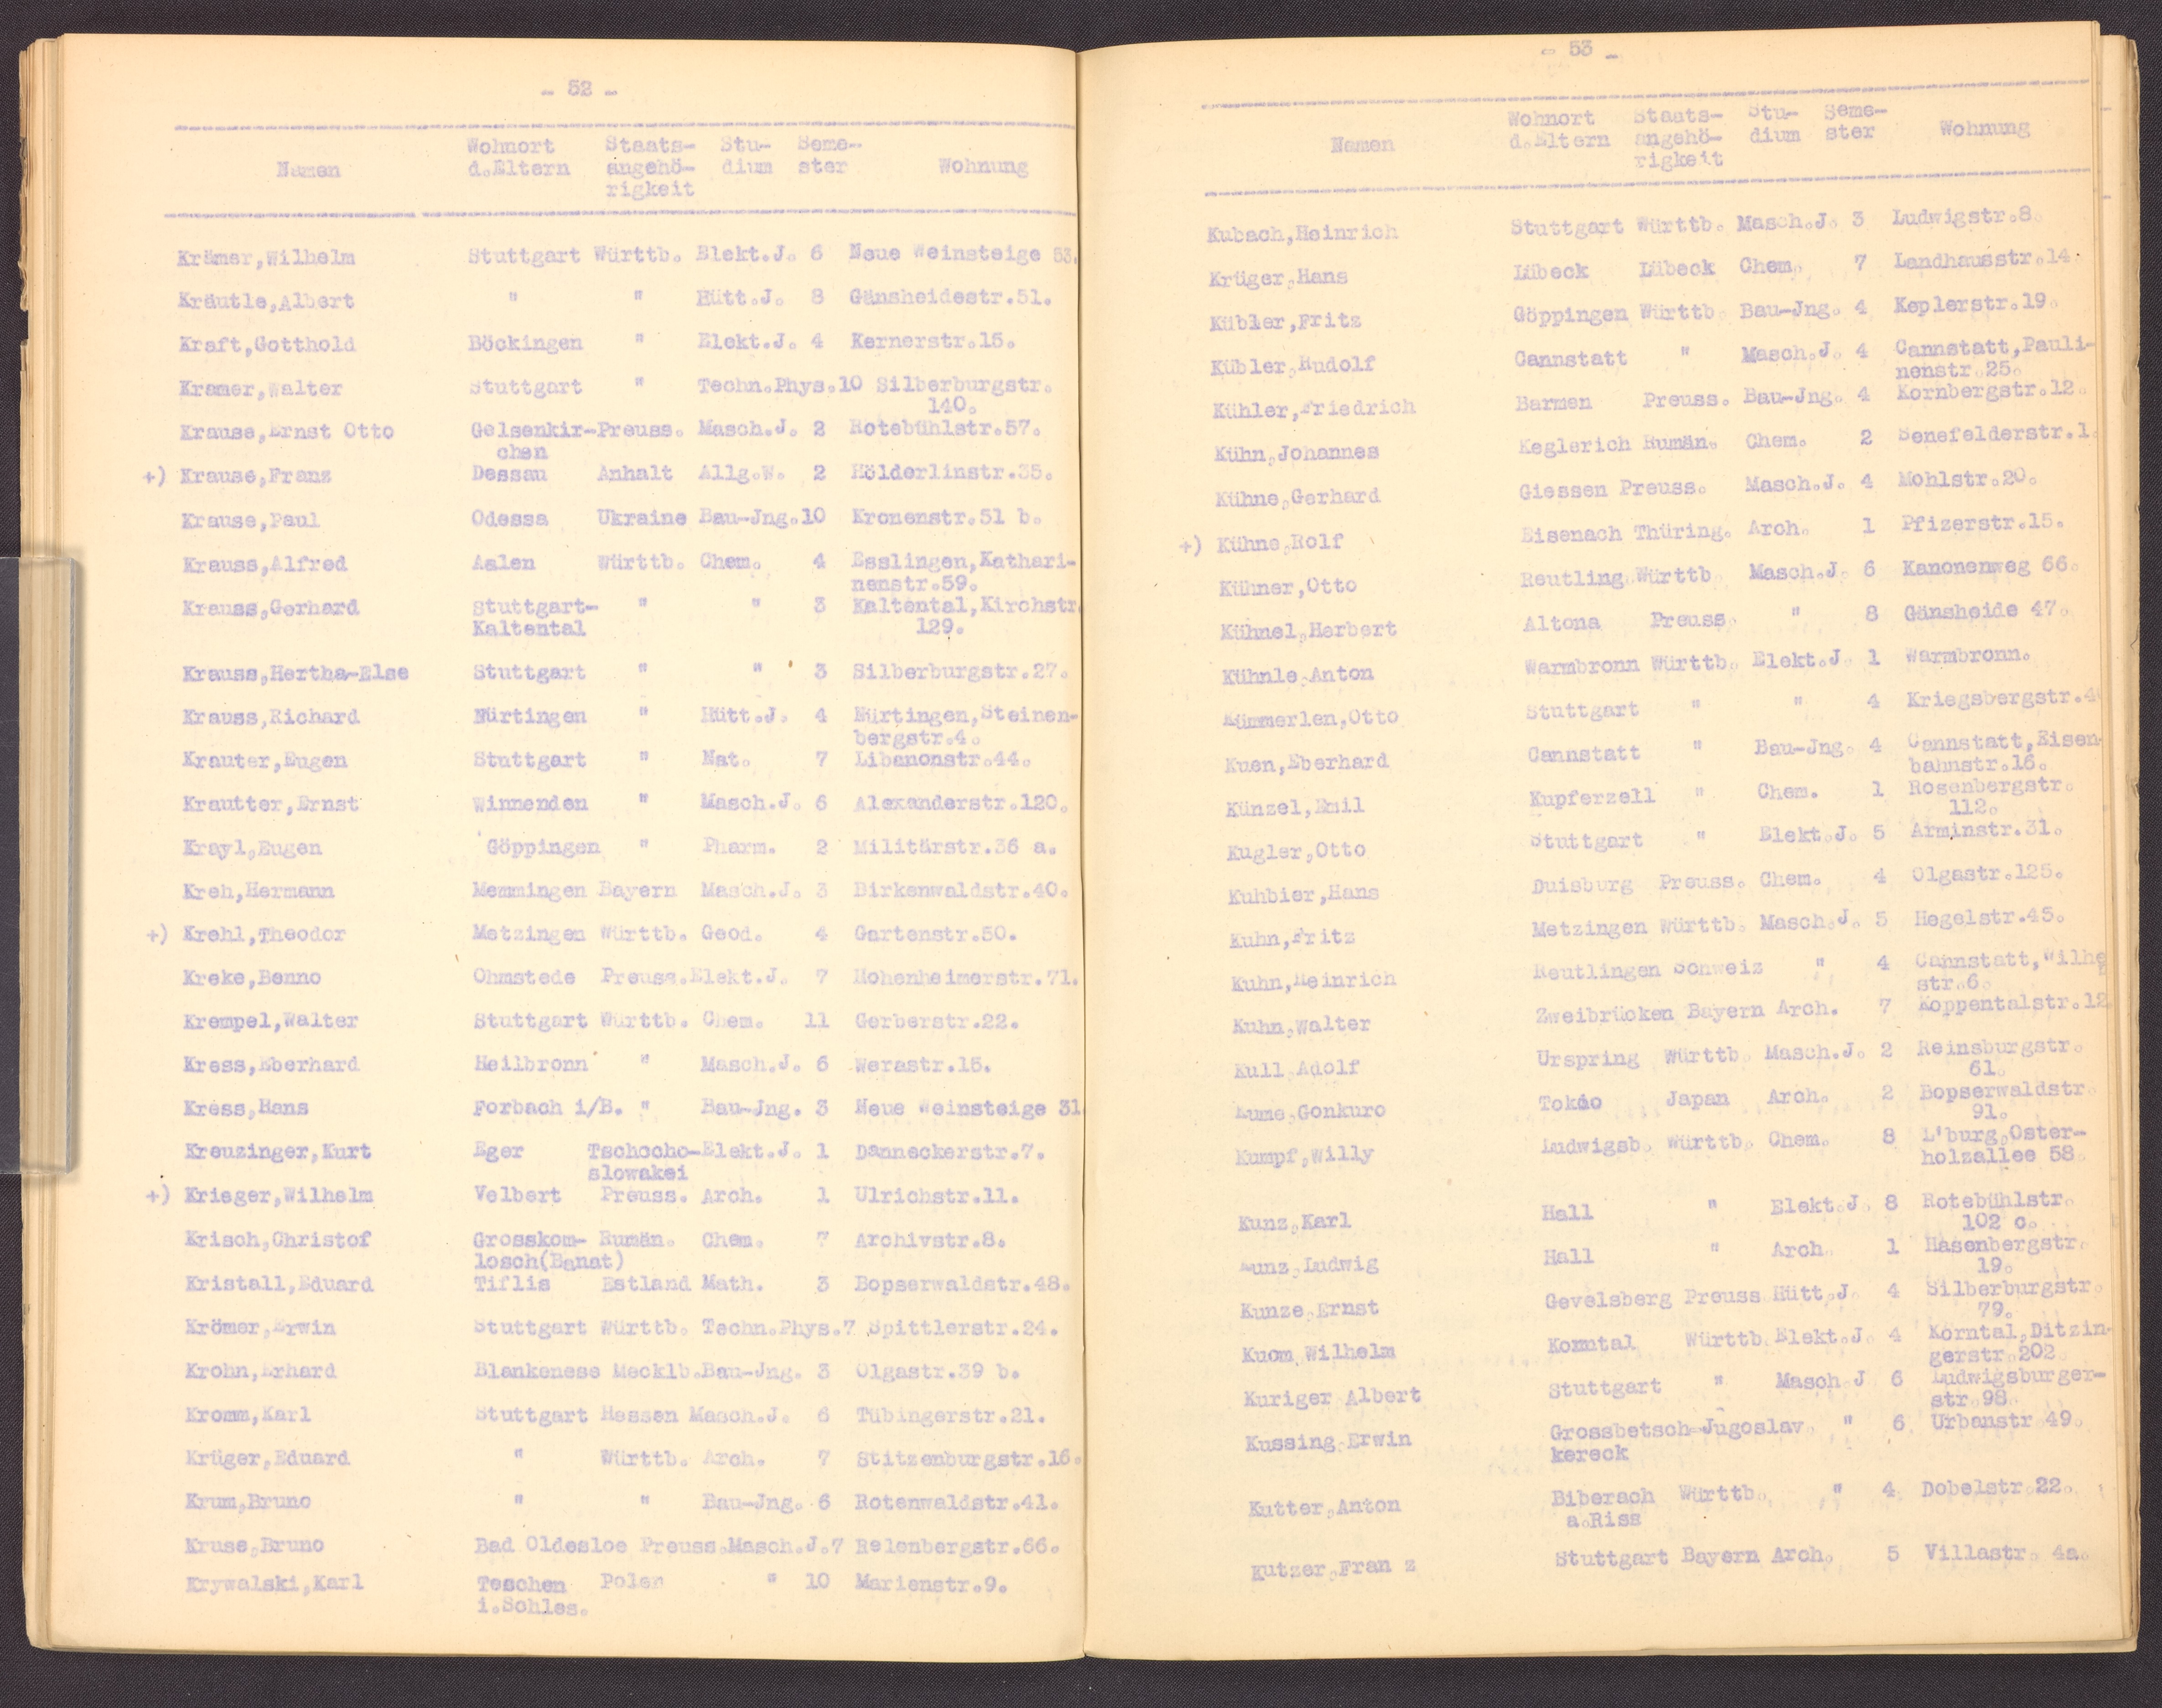 - 52 -
Namen Wohnort d.Eltern Staats-angehö-rigkeit Stu-dium Seme-ster Wohnung
Krämer,Wilhelm Stuttgart Württb. Elekt.J. 6 Neue Weinsteige 53.
Kräutle,Albert " " Hütt.J. 8 Gänsheidestr.51.
Kraft,Gotthold Böckingen " Elekt.J. 4 Kernerstr.15.
Kramer,Walter Stuttgart " Techn.Phys.10 Silberburgstr.
140.
Krause,Ernst Otto Gelsenkir-Preuss. Masch.J. 2 Rotebühlstr.57.
chen
+) Krause,Franz Dessau Anhalt Allg.W. 2 Hölderlinstr.35.
Krause,Paul Odessa Ukraine Bau-Jng.10 Kronenstr.51 b.
Krauss,Alfred Aalen Württb. Chem. 4 Esslingen,Kathari-
nenstr.59.
Krauss,Gerhard Stuttgart- " " 3 Kaltental,Kirchstr.
Kaltental 129.
Krauss,Hertha-Else Stuttgart " " 3 Silberburgstr.27.
Krauss,Richard Nürtingen " Hütt.J. 4 Nürtingen,Steinen-
bergstr.4.
Krauter,Eugen Stuttgart " Nat. 7 Libanonstr.44.
Krautter,Ernst Winnenden " Masch.J. 6 Alexanderstr.120.
Krayl,Eugen Göppingen " Pharm. 2 Militärstr.36 a.
Kreh,Hermann Memmingen Bayern Masch.J. 3 Birkenwaldstr.40.
+) Krehl,Theodor Metzingen Württb. Geod. 4 Gartenstr.50.
Kreke,Benno Ohmstede Preuss.Elekt.J. 7 Hohenheimerstr.71.
Krempel,Walter Stuttgart Württb. Chem. 11 Gerberstr.22.
Kress,Eberhard Heilbronn " Masch.J. 6 Werastr.15.
Kress,Hans Forbach i/B. " Bau-Jng. 3 Neue Weinsteige 31
Kreuzinger,Kurt Eger Tschecho-Elekt.J. 1 Danneckerstr.7.
slowakei
+) Krieger,Wilhelm Velbert Preuss. Arch. 1 Ulrichstr.11.
Krisch,Christof Grosskom- Rumän. Chem. 7 Archivstr.8.
losch(Banat)
Kristall,Eduard Tiflis Estland Math. 3 Bopserwaldstr.48.
Krömer,Erwin Stuttgart Württb. Techn.Phys.7 Spittlerstr.24.
Krohn,Erhard Blankenese Mecklb.Bau-Jng. 3 Olgastr.39 b.
Kromm,Karl Stuttgart Hessen Masch.J. 6 Tübingerstr.21.
Krüger,Eduard " Württb. Arch. 7 Stitzenburgstr.16.
Krum,Bruno " " Bau-Jng. 6 Rotenwaldstr.41.
Kruse,Bruno Bad Oldesloe Preuss.Masch.J.7 Relenbergstr.66.
Krywalski,Karl Teschen Polen " 10 Marienstr.9.
i.Schles.
- 53 -
Namen Wohnort d.Eltern Staats-angehö-rigkeit Stu-dium Seme-ster Wohnung
Kubach,Heinrich Stuttgart Württb. Masch.J. 3 Ludwigstr.8.
Krüger,Hans Lübeck Lübeck Chem. 7 Landhausstr.14.
Kübler,Fritz Göppingen Württb. Bau-Jng. 4 Keplerstr.19.
Kübler,Rudolf Cannstatt " Masch.J. 4 Cannstatt,Pauli-
nenstr.25.
Kühler,Friedrich Barmen Preuss. Bau-Jng. 4 Kornbergstr.12.
Kühn,Johannes Keglerich Rumän. Chem. 2 Senefelderstr.1.
Kühne,Gerhard Giessen Preuss. Masch.J. 4 Mohlstr.20.
+) Kühne,Rolf Eisenach Thüring. Arch. 1 Pfizerstr.15.
Kühner,Otto Reutling.Württb. Masch.J. 6 Kanonenweg 66.
Kühnel,Herbert Altona Preuss. " 8 Gänsheide 47.
Kühnle,Anton Warmbronn Württb. Elekt.J. 1 Warmbronn.
Kümmerlen,Otto Stuttgart " " 4 Kriegsbergstr.4
Kuen,Eberhard Cannstatt " Bau-Jng. 4 Cannstatt,Eisen-
bahnstr.16.
Künzel,Emil Kupferzell " Chem. 1 Rosenbergstr.
112.
Kugler,Otto Stuttgart " Elekt.J. 5 Arminstr.31.
Kuhbier,Hans Duisburg Preuss. Chem. 4 Olgastr.125.
Kuhn,Fritz Metzingen Württb. Masch.J. 5 Hegelstr.45.
Kuhn,Heinrich Reutlingen Schweiz " 4 Cannstatt,Wilhe
str.6.
Kuhn,Walter Zweibrücken Bayern Arch. 7 Koppentalstr.12
Kull,Adolf Urspring Württb. Masch.J. 2 Reinsburgstr.
61.
Kume,Gonkuro Tokio Japan Arch. 2 Bopserwaldstr.
91.
Kumpf,Willy Ludwigsb. Württb. Chem. 8 L'burg,Oster-
holzallee 58.
Kunz,Karl Hall " Elekt.J. 8 Rotebühlstr.
102 c.
Kunz,Ludwig Hall " Arch. 1 Hasenbergstr.
19.
Kunze,Ernst Gevelsberg Preuss.Hütt.J. 4 Silberburgstr.
79.
Kuom,Wilhelm Korntal Württb.Elekt.J. 4 Korntal,Ditzin-
gerstr.202.
Kuriger Albert Stuttgart " Masch.J 6 Ludwigsburger-
str.98.
Kussing,Erwin Grossbetsch-Jugoslav. " 6 Urbanstr 49.
kereck
Kutter,Anton Biberach Württb. " 4 Dobelstr.22.
a.Riss
Kutzer,Fran z Stuttgart Bayern Arch. 5 Villastr. 4a.